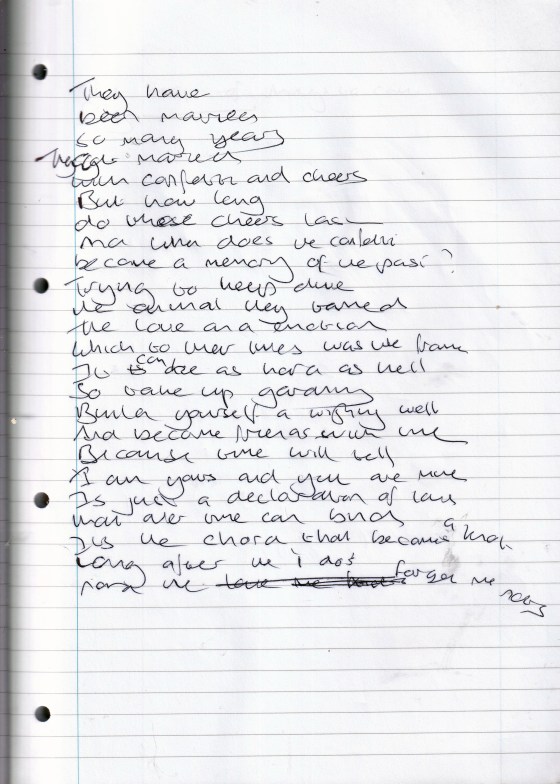 They have
been married
so many years
married
with confetti and cheers
But how long
do those cheers last
And when does the confetti
become a memory of the past?
Trying to keep alive
the animal they tamed
The love and emotion
which to their lives was the frame
It can be as hard as hell
So take up gardening
Build yourself a wishing well
And become friends with time
Because time will tell
I am yours and you are mine
Is just a declaration of love
that over time can bind
It's the chord that became a knot
Long after the i do's
forget the